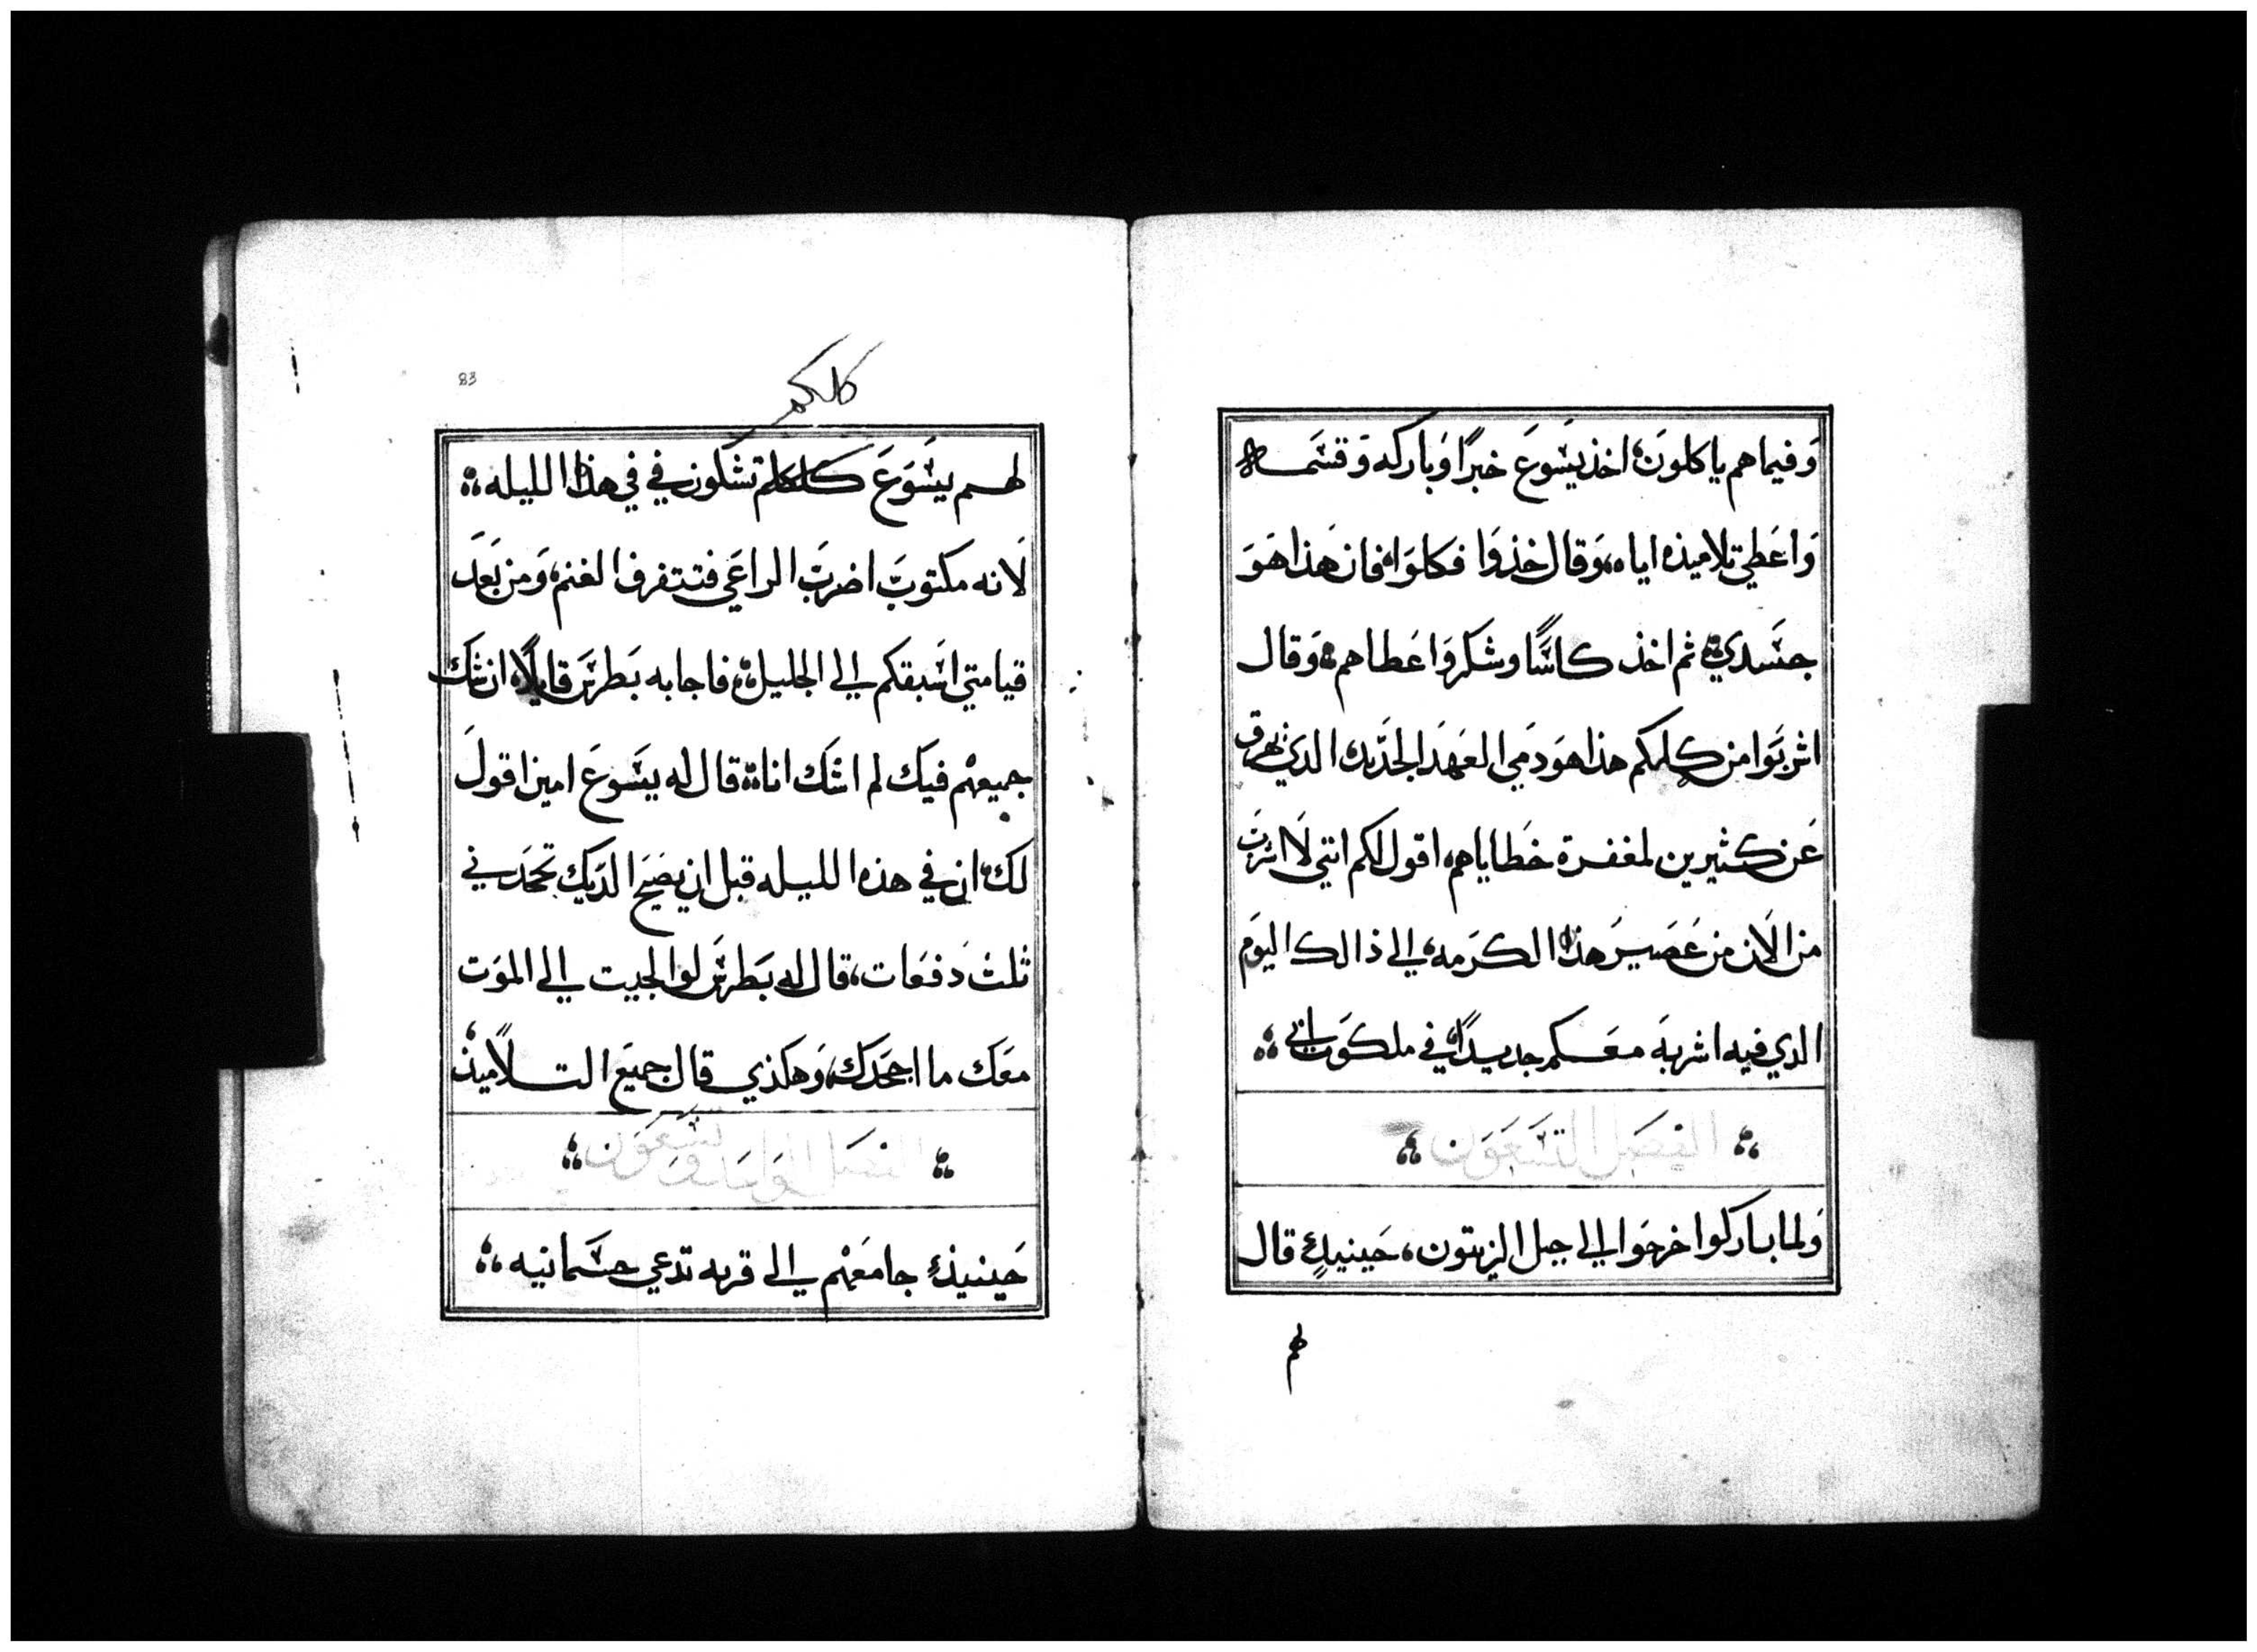 وَفيما هم ياكلونَ، اخذ يسَوعَ خبزًا وَباركه وَقسَمه
وَاعَطي تلاميذه اياه، وَقال خذوَا فكلوَا، فان هَذا هَوَ
جسَدي، ثم اخذ كاسًا وشكر وَاعَطاهم، وَقال
اشربَوا من كلكم هذا هوَ دَمي العَهدَ الجدَيد، الدي يهرق
عَن كثيرين لمغفرة خَطاياهم، اقول لكم انني لَا اشربَ
من الاَن من عَصَيرَ هذا الكرَمه، الي ذالك اليوَم
الدي فيه اشربهَ معَكم جديدًا، في ملكوَت ابي
الفصَل التسَعَوَن
وَلما باركوا خرجَوا الي جبل الزيتون، حَينيدٍ قال
لهم
83
كلكم
لهم يسَوَعَ كلكم تشكون في في هذا الليله
لَانه مكتوبَ اضربَ الراعَي فتتفرق الغنم، وَمن بَعَدَ
قيامتي اسَبقكم الي الجليل، فاجابه بَطرسَ قايلًا، ان شك
جميعهم فيك لم اشَك انا، قال له يسَوعَ امين اقولَ
لك، ان في هذه الليله قبل ان يصَيح الدَيك تجحَدَني
ثلث دَفعَات، قال له بَطرسَ لو الجيت الي الموَت
معَك ما اجحَدك، وَهكذي قال جميعَ التلاميذ
الفصَل الواحَد وَتسَعَوَن
حَينيذٍ جا معَهم الي قريه تدعي جسَمانيه